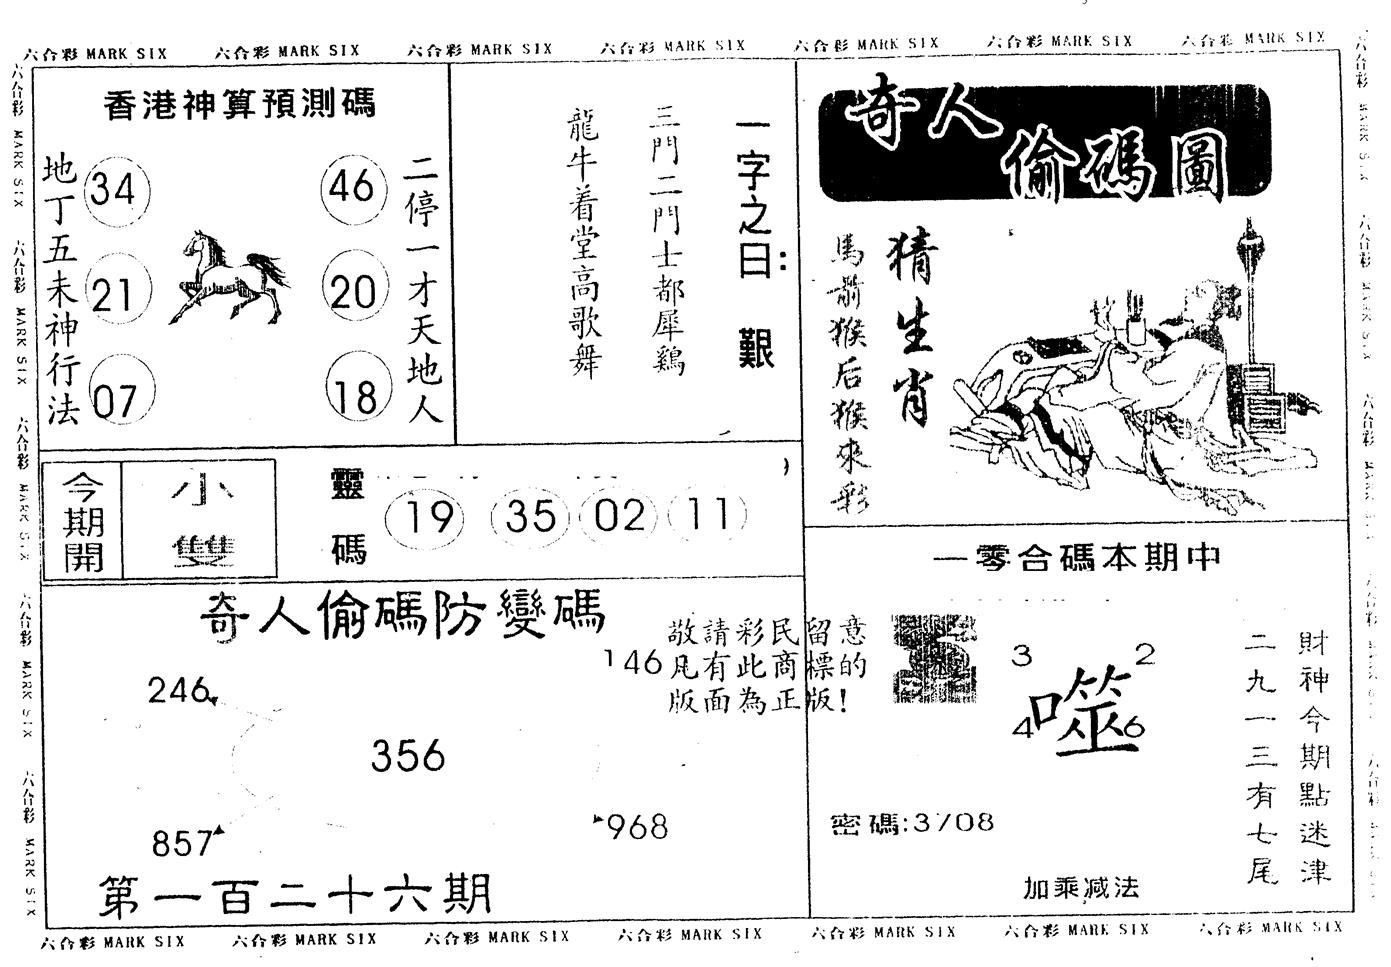 六合彩 MARK SIX 六合彩 MARK SIX 六合彩 MARK SIX 六合彩 MARK SIX 六合彩 MARK SIX 六合彩 MARK SIX 六合彩 MARK SIX
六合彩 MARK SIX 六合彩 MARK SIX 六合彩 MARK SIX 六合彩 MARK SIX 六合彩 MARK SIX
香港神算預測碼
地丁五未神行法
34
21
07
46
20
18
二停一才天地人
一字之曰: 艱
三門二門士都犀鷄
龍牛着堂高歌舞
奇人
偷碼圖
猜生肖
馬前猴后猴來彩
今期開
小
雙
靈碼
19 35 02 11
奇人偷碼防變碼
246
146
356
857
968
敬請彩民留意
凡有此商標的
版面為正版!
第一百二十六期
一零合碼本期中
3 2
噬
4 6
財神今期點迷津
二九一三有七尾
密碼:3708
加乘减法
六合彩 MARK SIX 六合彩 MARK SIX 六合彩 MARK SIX 六合彩 MARK SIX 六合彩 MARK SIX 六合彩 MARK SIX 六合彩 MARK SIX